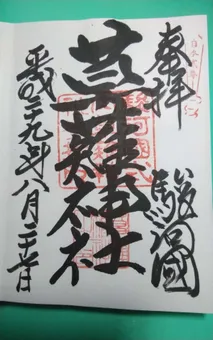 奉拝
駿河國
草薙神社
平成二十九年八月二十日